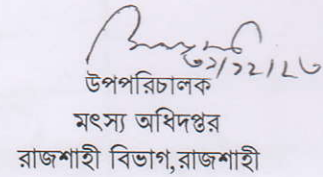 উপপরিচালক
মৎস্য অধিদপ্তর
রাজশাহী বিভাগ,রাজশাহী